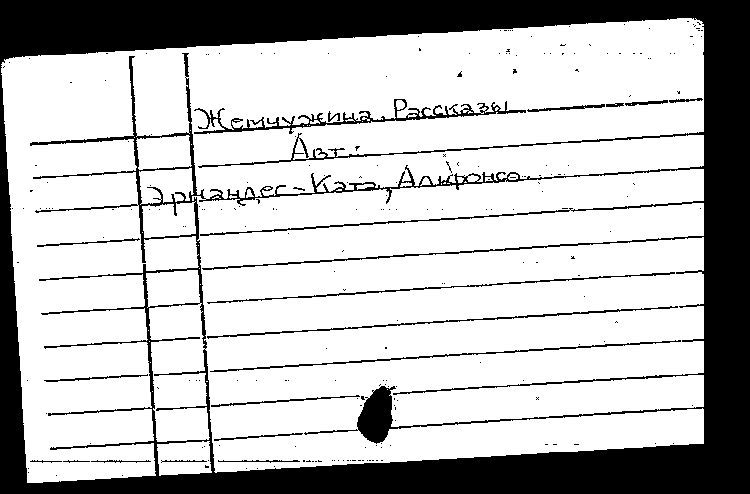 Жемчужина. Рассказы
Авт.:
Эрнандес-Ката, Альфонсо.